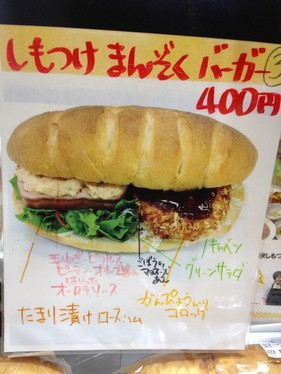 しもつけ まんぞく バーガー
400円
玉ねぎ・ピクルス
オーロラソース
ごぼう
マヨネーズ
キャベツ
グリーンサラダ
かんぴょう入り
コロッケ
たまり漬け ロースハム